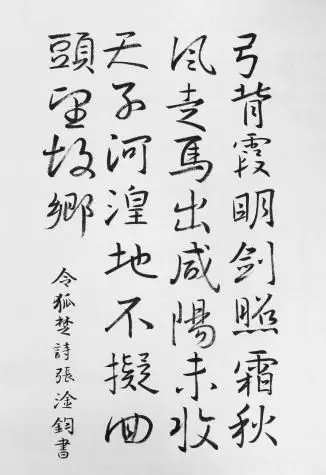 弓背霞明剑照霜秋
风走馬出咸陽未收
天子河湟地不擬回
頭望故鄉
令狐楚詩張淦鈞書